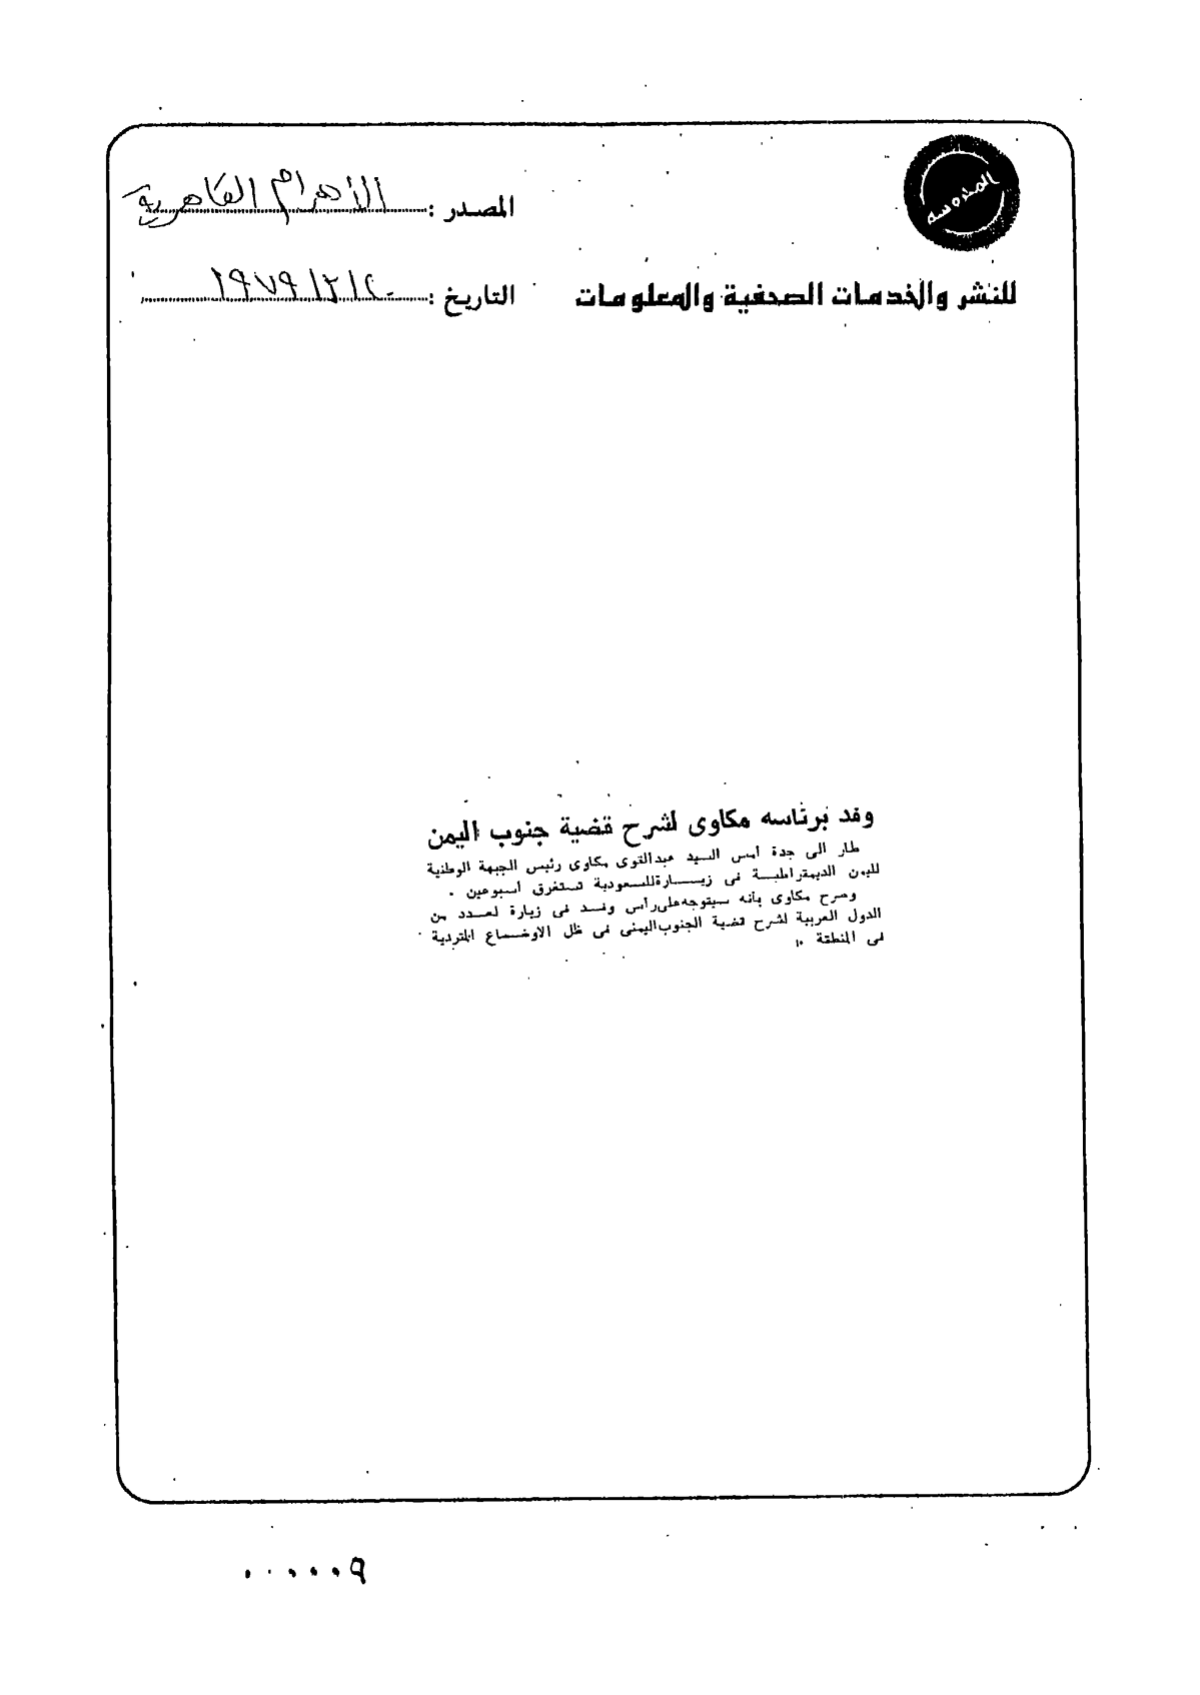 المدروسه
المصدر : الأهرام القاهرية
للنشر والخدمات الصحفية والمعلومات
التاريخ : ٢٠/٢/١٩٧٩
وفد برئاسه مكاوى لشرح قضية جنوب اليمن
طار الى جدة أمس السيد عبدالقوى مكاوى رئيس الجبهة الوطنية
لليمن الديمقراطيــة فى زيــــارة للسعودية تستغرق أسبوعين .
وصرح مكاوى بأنه سيتوجه على رأس وفــد فى زيارة لعــدد من
الدول العربية لشرح قضية الجنوب اليمنى فى ظل الاوضــاع المتردية
فى المنطقة .
٠٠٠٠٠٩